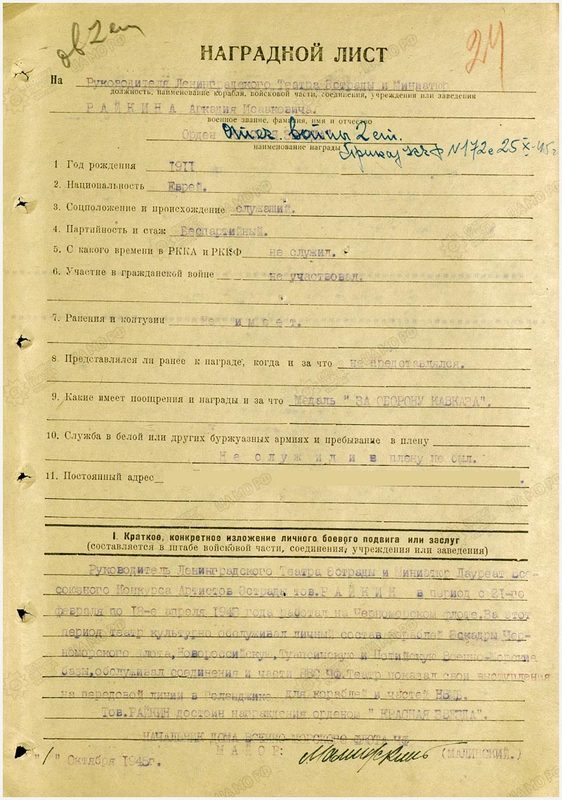 ов 2 ст
24
НАГРАДНОЙ ЛИСТ
На Руководителя Ленинградского Театра Эстрады и Миниатюр
должность, наименование корабля, войсковой части, соединения, учреждения или заведения
РАЙКИНА Аркадия Исааковича.
воинское звание, фамилия, имя и отчество
Орден Отеч. войны 2 ст.
наименование награды Приказ КЧФ N172с 25 X-45 г
1. Год рождения 1911
2. Национальность Еврей.
3. Соцположение и происхождение служащий.
4. Партийность и стаж Беспартийный.
5. С какого времени в РККА и РКВФ не служил.
6. Участие в гражданской войне не участвовал.
7. Ранения и контузии не имеет.
8. Представлялся ли ранее к награде, когда и за что не представлялся.
9. Какие имеет поощрения и награды и за что Медаль " ЗА ОБОРОНУ КАВКАЗА".
10. Служба в белой или других буржуазных армиях и пребывание в плену
Не служил и в плену не был.
11. Постоянный адрес
I. Краткое, конкретное изложение личного боевого подвига или заслуг
(составляется в штабе войсковой части, соединения, учреждения или заведения)
Руководитель Ленинградского Театра Эстрады и Миниатюр Лауреат Все-
союзного Конкурса Артистов Эстрады тов. РАЙКИН в период с 21-го
февраля по 12-е апреля года работал на Черноморском флоте. За этот
период театр культурно обслуживал личный состав кораблей Эскадры Чер-
номорского Флота, Новороссийскую, Туапсинскую и Потийскую Военно-Морские
базы, обслуживал соединения и части ВВС ЧФ. Театр показал свои выступления
на передовой линии в Геленджике для кораблей и частей НВМБ.
Тов. РАЙКИН достоин награждения орденом " КРАСНАЯ ЗВЕЗДА".
НАЧАЛЬНИК ДОМА ВОЕННО-МОРСКОГО ФЛОТА ЧФ
МАЙОР: (МАЛИНСКИЙ.)
"1" Октября 1945г.